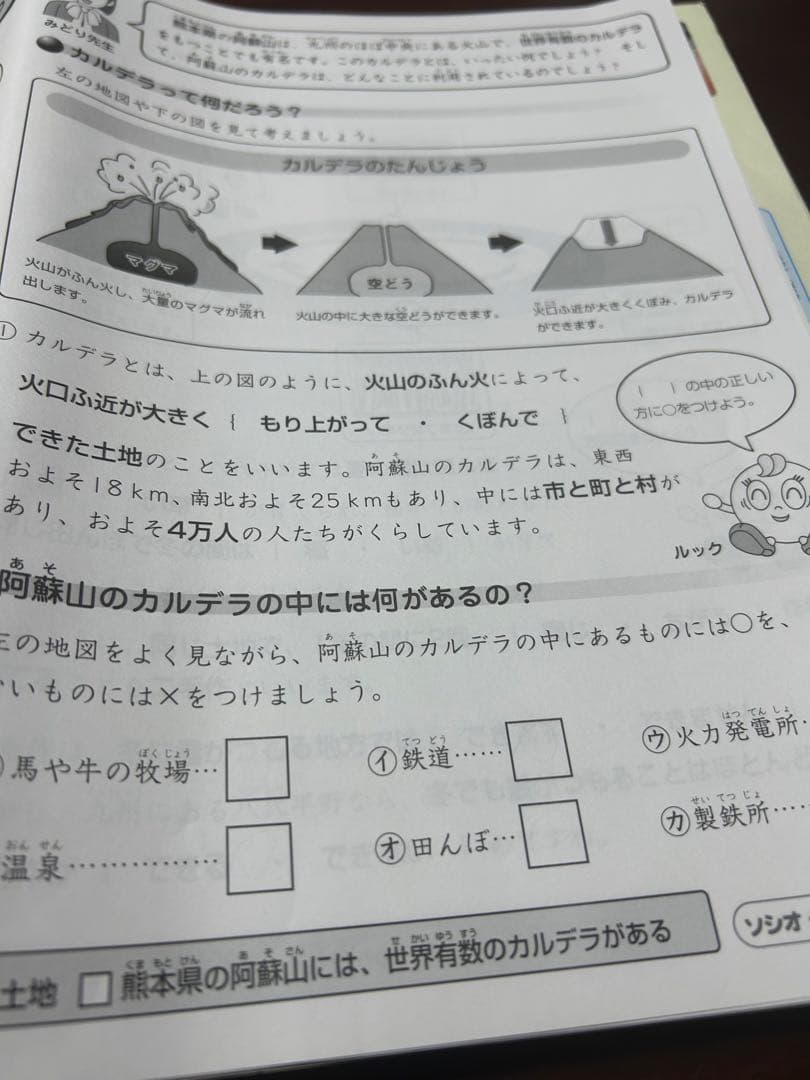 みどり先生
熊本県の阿蘇山は、九州のほぼ中央にある火山で、世界有数のカルデラ
をもつことでも有名です。このカルデラとは、いったい何でしょう? そし
て、阿蘇山のカルデラは、どんなことに利用されているのでしょう?
●カルデラって何だろう?
左の地図や下の図を見て考えましょう。
カルデラのたんじょう
マグマ
空どう
火山がふん火し、大量のマグマが流れ
出します。
火山の中に大きな空どうができます。
火口ふ近が大きくくぼみ、カルデラ
ができます。
① カルデラとは、上の図のように、火山のふん火によって、
火口ふ近が大きく { もり上がって ・ くぼんで }
できた土地のことをいいます。阿蘇山のカルデラは、東西
およそ18km、南北およそ25kmもあり、中には市と町と村が
あり、およそ4万人の人たちがくらしています。
{ }の中の正しい
方に○をつけよう。
ルック
阿蘇山のカルデラの中には何があるの?
の地図をよく見ながら、阿蘇山のカルデラの中にあるものには○を、
いものには×をつけましょう。
馬や牛の牧場…
㋑鉄道……
㋒火力発電所…
温泉……………
㋔田んぼ…
㋕製鉄所……
土地 □ 熊本県の阿蘇山には、世界有数のカルデラがある
ソシオ